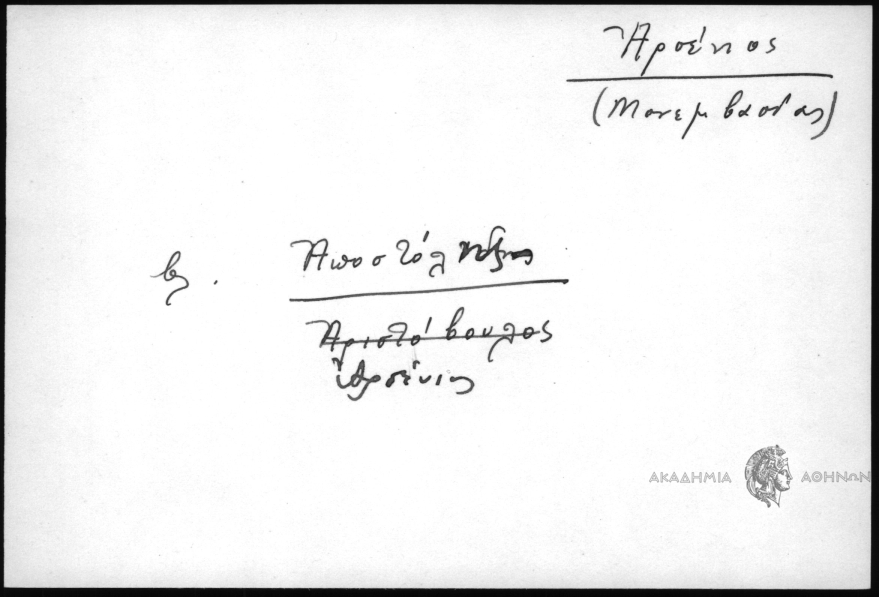 Ἀρσένιος
(Μονεμβασίας)
βλ. Ἀποστόλης
Ἀριστόβουλος
Ἀρσένιος
ΑΚΑΔΗΜΙΑ ΑΘΗΝΩΝ